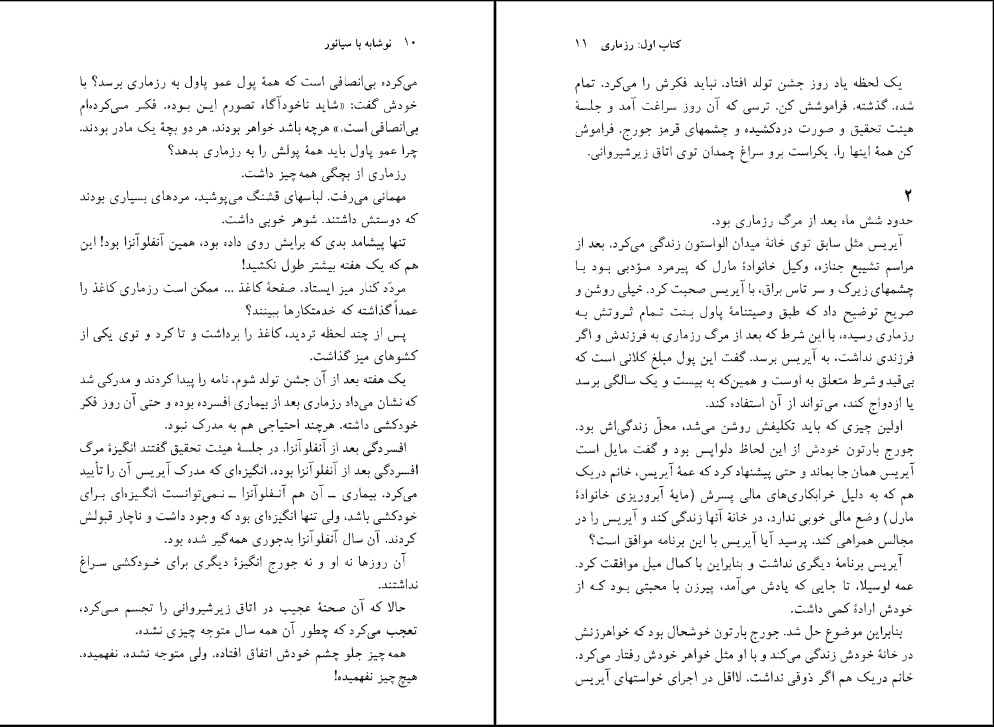 ۱۰ نوشابه با سیانور
می‌کرده بی‌انصافی است که همهٔ پول عمو پاول به رزماری برسد؟ با
خودش گفت: «شاید ناخودآگاه تصورم ایـن بـوده. فکـر مـی‌کرده‌ام
بی‌انصافی است.» هرچه باشد خواهر بودند. هر دو بچهٔ یک مادر بودند.
چرا عمو پاول باید همهٔ پولش را به رزماری بدهد؟
رزماری از بچگی همه‌چیز داشت.
مهمانی می‌رفت. لباسهای قشنگ می‌پوشید، مردهای بسیاری بودند
که دوستش داشتند. شوهر خوبی داشت.
تنها پیشامد بدی که برایش روی داده بود، همین آنفلوآنزا بود! این
هم که یک هفته بیشتر طول نکشید!
مردّد کنار میز ایستاد. صفحهٔ کاغذ ... ممکن است رزماری کاغذ را
عمداً گذاشته که خدمتکارها ببینند؟
پس از چند لحظه تردید، کاغذ را برداشت و تا کرد و توی یکی از
کشوهای میز گذاشت.
یک هفته بعد از آن جشن تولد شوم، نامه را پیدا کردند و مدرکی شد
که نشان می‌داد رزماری بعد از بیماری افسرده بوده و حتی آن روز فکر
خودکشی داشته. هرچند احتیاجی هم به مدرک نبود.
افسردگی بعد از آنفلوآنزا. در جلسهٔ هیئت تحقیق گفتند انگیزهٔ مرگ
افسردگی بعد از آنفلوآنزا بوده. انگیزه‌ای که مدرک آیریس آن را تأیید
می‌کرد. بیماری ــ آن هم آنـفلوآنزا ــ نـمی‌توانست انگـیزه‌ای بـرای
خودکشی باشد، ولی تنها انگیزه‌ای بود که وجود داشت و ناچار قبولش
کردند. آن سال آنفلوآنزا بدجوری همه‌گیر شده بود.
آن روزها نه او و نه جورج انگیزهٔ دیگری برای خـودکشی سـراغ
نداشتند.
حالا که آن صحنهٔ عجیب در اتاق زیرشیروانی را تجسم مـی‌کرد،
تعجب می‌کرد که چطور آن همه سال متوجه چیزی نشده.
همه‌چیز جلو چشم خودش اتفاق افتاده. ولی متوجه نشده. نفهمیده.
هیچ چیز نفهمیده!
کتاب اول: رزماری ۱۱
یک لحظه یاد روز جشن تولد افتاد. نباید فکرش را می‌کرد. تمام
شده. گذشته. فراموشش کن. ترسی که آن روز سراغت آمد و جلسهٔ
هیئت تحقیق و صورت دردکشیده و چشمهای قرمز جورج. فراموش
کن همهٔ اینها را. یکراست برو سراغ چمدان توی اتاق زیرشیروانی.
۲
حدود شش ماه بعد از مرگ رزماری بود.
آیریس مثل سابق توی خانهٔ میدان الواستون زندگی می‌کرد. بعد از
مراسم تشییع جنازه، وکیل خانوادهٔ مارل که پیرمرد مـؤدبی بـود بـا
چشمهای زیرک و سر تاس براق، با آیریس صحبت کرد. خیلی روشن و
صریح توضیح داد که طبق وصیتنامهٔ پاول بـنت تـمام ثـروتش بـه
رزماری رسیده، با این شرط که بعد از مرگ رزماری به فرزندش و اگر
فرزندی نداشت، به آیریس برسد. گفت این پول مبلغ کلانی است که
بی‌قیدوشرط متعلق به اوست و همین‌که به بیست و یک سالگی برسد
یا ازدواج کند، می‌تواند از آن استفاده کند.
اولین چیزی که باید تکلیفش روشن می‌شد، محلّ زندگی‌اش بود.
جورج بارتون خودش از این لحاظ دلواپس بود و گفت مایل است
آیریس همان‌جا بماند و حتی پیشنهاد کرد که عمهٔ آیریس، خانم دریک
هم که به دلیل خرابکاری‌های مالی پسرش (مایهٔ آبروریزی خانوادهٔ
مارل) وضع مالی خوبی ندارد، در خانهٔ آنها زندگی کند و آیریس را در
مجالس همراهی کند. پرسید آیا آیریس با این برنامه موافق است؟
آیریس برنامهٔ دیگری نداشت و بنابراین با کمال میل موافقت کرد.
عمه لوسیلا، تا جایی که یادش می‌آمد، پیرزن با محبتی بـود کـه از
خودش ارادهٔ کمی داشت.
بنابراین موضوع حل شد. جورج بارتون خوشحال بود که خواهرزنش
در خانهٔ خودش زندگی می‌کند و با او مثل خواهر خودش رفتار می‌کرد.
خانم دریک هم اگر ذوقی نداشت، لااقل در اجرای خواستهای آیریس